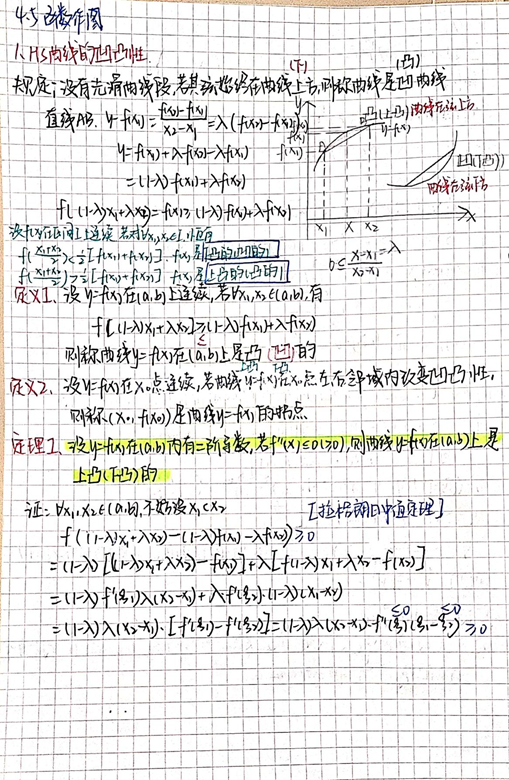 4.5 函数作图
1. HS曲线的凹凸性
规定:设有光滑曲线段,若其弦始终在曲线上方,则称曲线是凹曲线
(下)
(凸)
直线AB: y-f(x₁)=\frac{f(x₂)-f(x₁)}{x₂-x₁}=λ(f(x₂)-f(x₁))
y=f(x₁)+λf(x₂)-λf(x₁)
=(1-λ)f(x₁)+λf(x₂)
f((1-λ)x₁+λx₂)=f(x)≥(1-λ)f(x₁)+λf(x₂)
y
f(x₁)
凸(上凸) 曲线在弦上方
y=f(x)
凹(下凸)
曲线在弦下方
x₁ x x₂ x
0≤\frac{x-x₁}{x₂-x₁}=λ
设f(x)在区间I上连续,若对∀x₁,x₂∈I,恒有
f(\frac{x₁+x₂}{2})<\frac{1}{2}[f(x₁)+f(x₂)],f(x)是
f(\frac{x₁+x₂}{2})>\frac{1}{2}[f(x₁)+f(x₂)],f(x)是上凸的(凸的)
定义1. 设y=f(x)在(a,b)上连续,若∀x₁,x₂∈(a,b),有
f[(1-λ)x₁+λx₂]≥(1-λ)f(x₁)+λf(x₂)
≤
则称曲线y=f(x)在(a,b)上是凸(凹)的
上凸 下凸
定义2. 设y=f(x)在x₀点连续,若曲线y=f(x)在x₀点左右邻域内改变凹凸性,
则称(x₀,f(x₀))是曲线y=f(x)的拐点
定理1. 设y=f(x)在(a,b)内有二阶导数,若f''(x)≤0(≥0),则曲线y=f(x)在(a,b)上是
上凸(下凸)的
证:∀x₁,x₂∈(a,b),不妨设x₁<x₂ [拉格朗日中值定理]
f((1-λ)x₁+λx₂)-(1-λ)f(x₁)-λf(x₂)≥0
=(1-λ)[f((1-λ)x₁+λx₂)-f(x₁)]+λ[f(1-λ)x₁+λx₂-f(x₂)]
=(1-λ)f'(ξ₁)λ(x₂-x₁)+λf'(ξ₂)·(1-λ)(x₁-x₂)
=(1-λ)λ(x₂-x₁)·[f'(ξ₁)-f'(ξ₂)]=(1-λ)λ(x₂-x₁)·f''(ξ)(ξ₁-ξ₂)≥0
≤0 ≤0